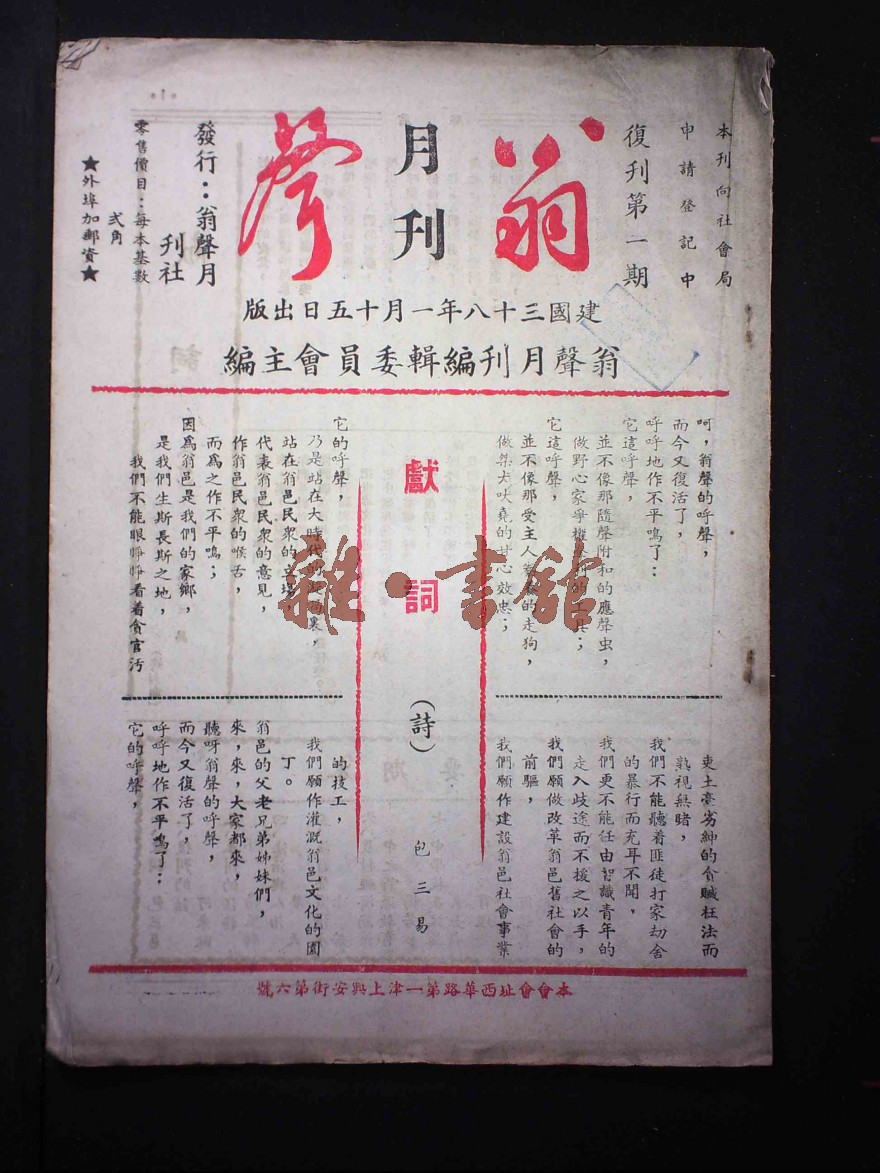 本刊向社會局
申請登記中
復刊第一期
翁聲
月刊
發行：翁聲月
刊社
零售價目：每本基數
弍角
★外埠加郵資★
建國三十八年一月十五日出版
翁聲月刊編輯委員會主編
獻詞
（詩）
包三易
呵，翁聲的呼聲，
而今又復活了，
呼呼地作不平鳴了：
它這呼聲，
並不像那隨聲附和的應聲虫，
做野心家爭權的工具；
它這呼聲，
並不像那受主人豢養的走狗，
做桀犬吠堯的甘心效忠；
它的呼聲，
乃是站在大時代的裏，
站在翁邑民衆的立場，
代表翁邑民衆的意見，
作翁邑民衆的喉舌，
而爲之作不平鳴；
因爲翁邑是我們的家鄉，
是我們生斯長斯之地，
我們不能眼睜睜看着貪官汚
吏土豪劣紳的貪贓枉法而
熟視無睹，
我們不能聽着匪徒打家劫舍
的暴行而充耳不聞，
我們更不能任由智識青年的
走入歧途而不援之以手，
我們願做改革翁邑舊社會的
前驅，
我們願作建設翁邑社會事業
的技工，
我們願作灌溉翁邑文化的園
丁。
翁邑的父老兄弟姊妹們，
來，來，大家都來，
聽呀翁聲的呼聲，
而今又復活了，
呼呼地作不平鳴了：
它的呼聲，
本會會址西華路第一津上興安街第六號
雜·書館